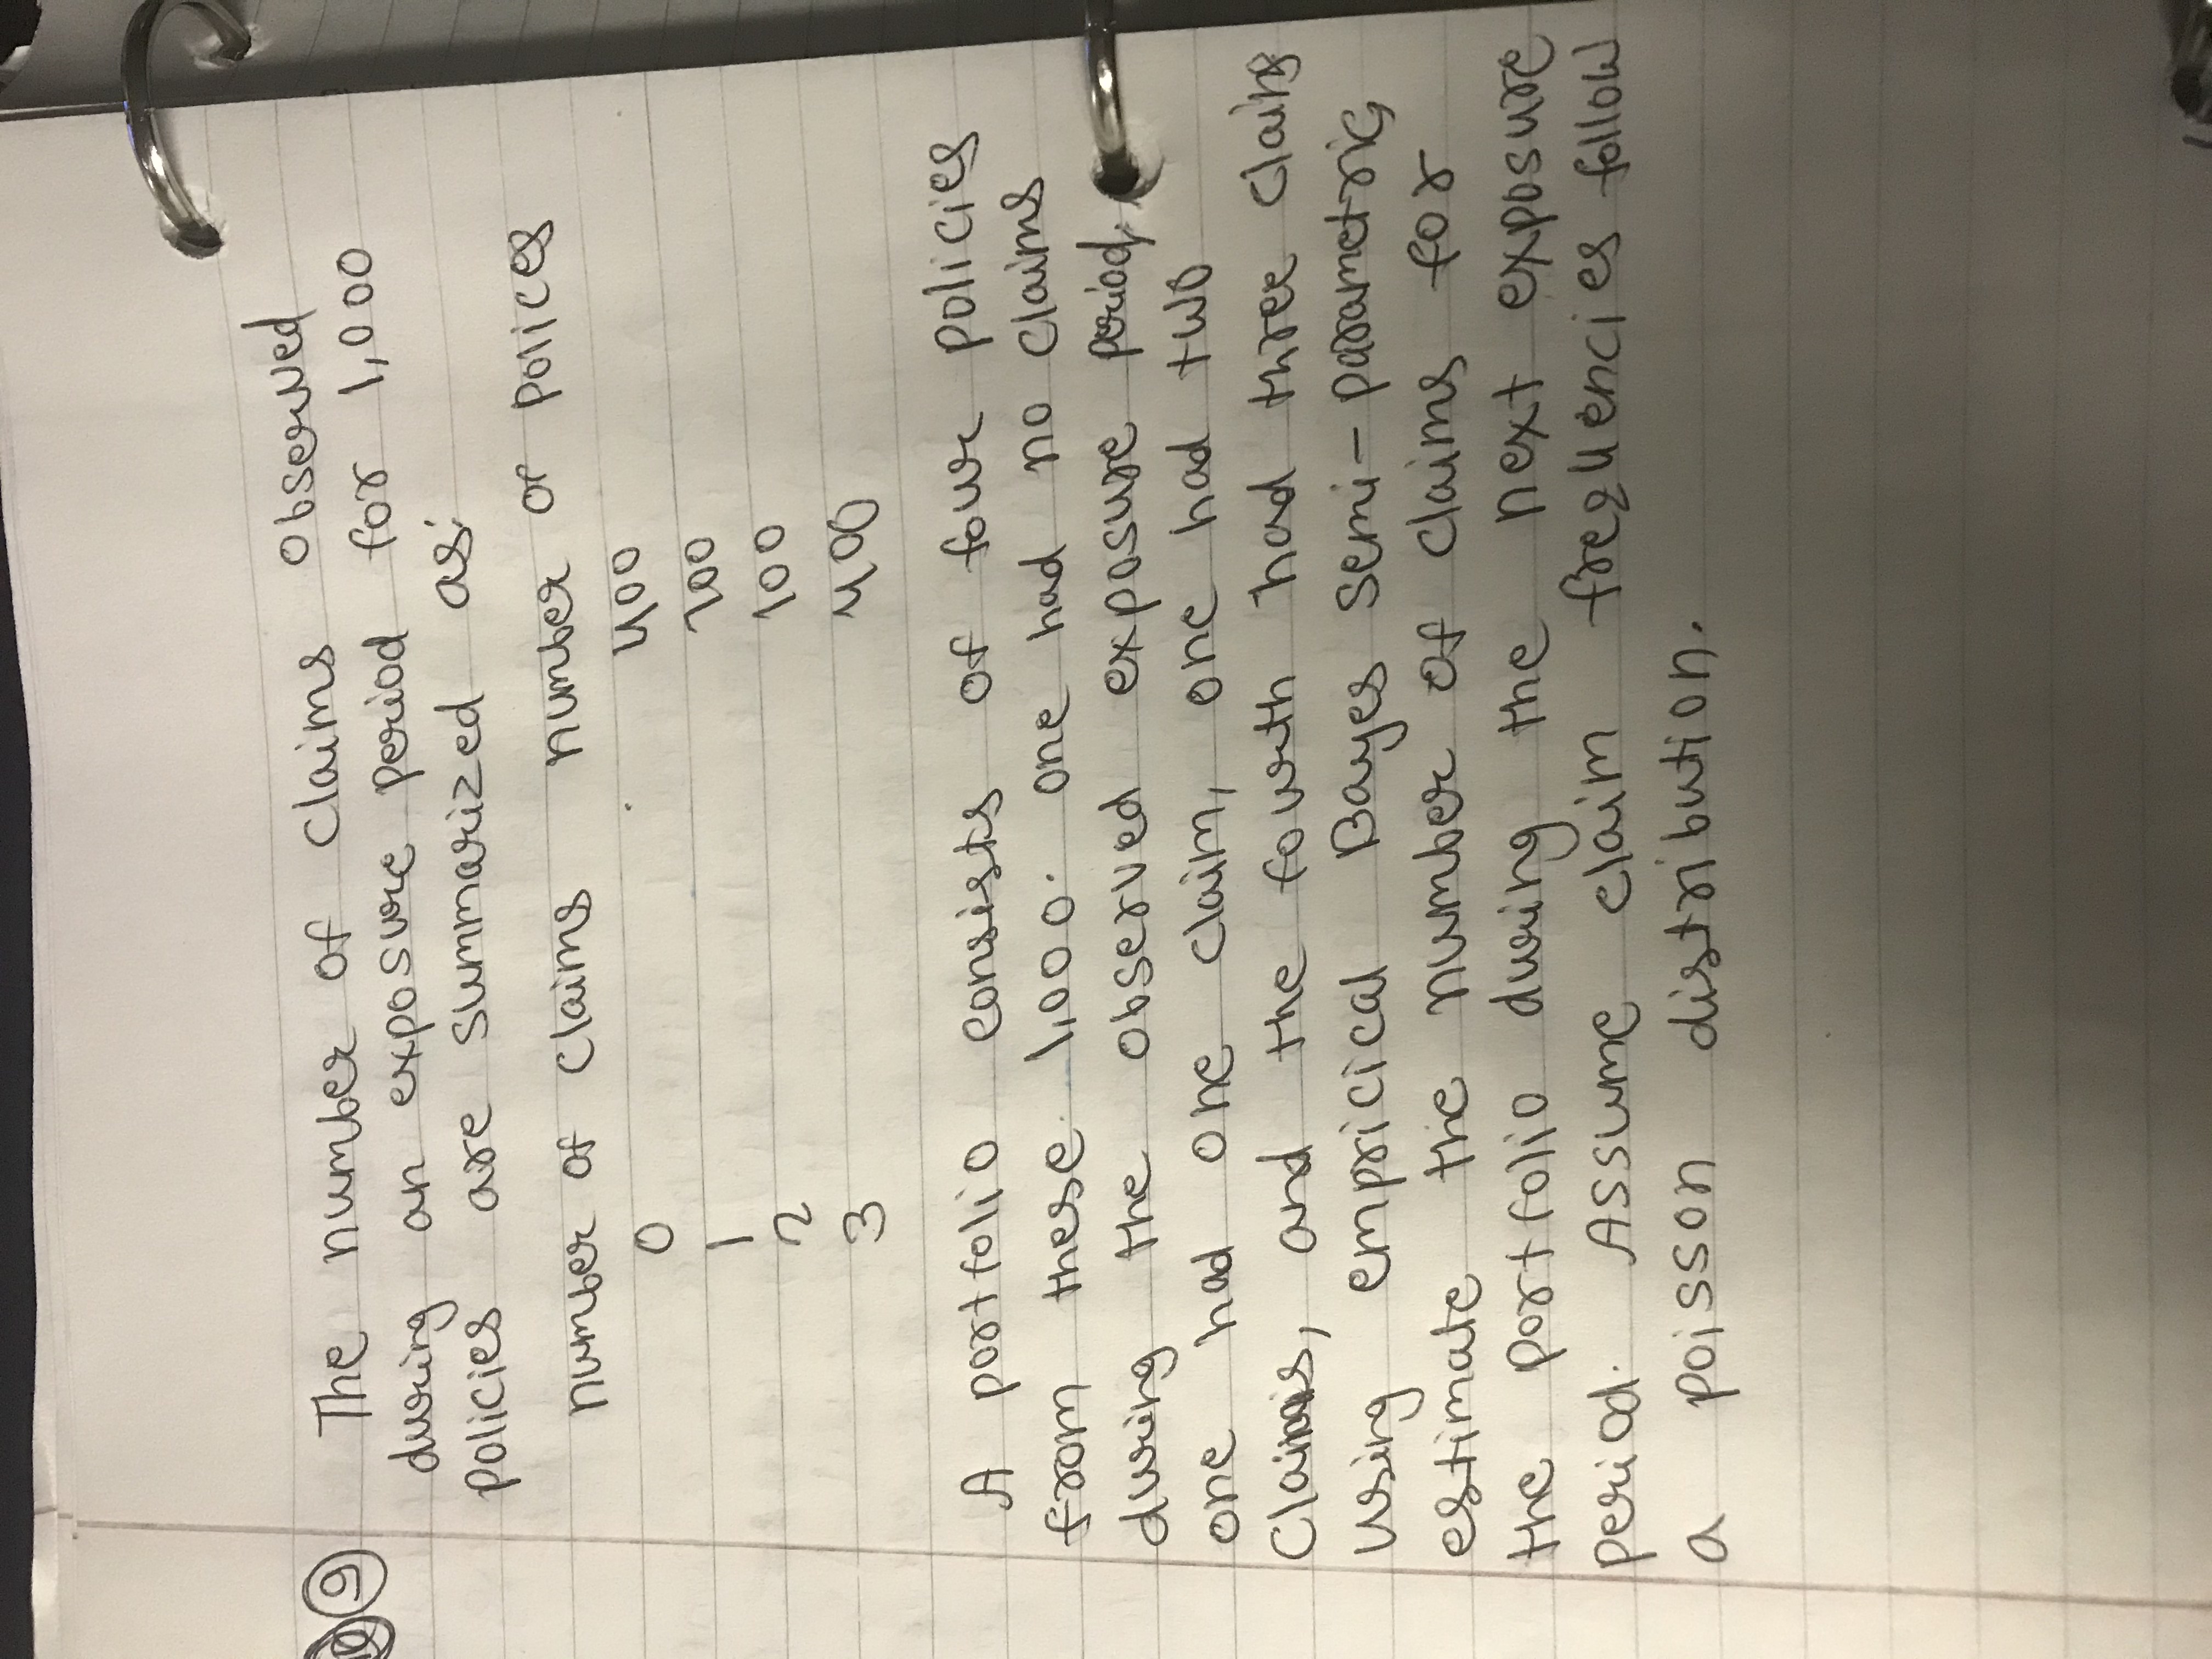 9 The number of claims observed
during an exposure period for 1,000
policies are summarized as:
number of claims number of polices
0 400
1 100
2 100
3 400
A portfolio consists of four policies
from these 1,000. one had no claims
during the observed exposure period,
one had one claim, one had two
claims, and the fourth had three claims
using emprical Bayes semi-parametric
estimate the number of claims for
the portfolio during the next exposure
period. Assume claim frequencies follow
a poisson distribution.